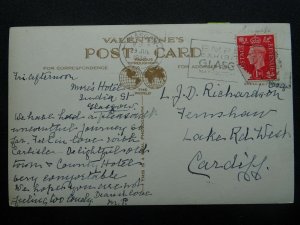 VALENTINE'S
POST CARD
FOR CORRESPONDENCE
FOR ADDRESS
FAMOUS THROUGHOUT
THE WORLD
EMPIRE
GLASGOW
POSTAGE
REVENUE
Fri afternoon
More's Hotel
India St
Glasgow
We have had a pleasant
uneventful journey so
far. Fell in love with
Carlisle - Delightful old
Town & County Hotel
very comfortable
We hope you are not
feeling too lonely. Dearest love
M. P
L. J. D. Richardson
Fernshaw
Lake Rd West
Cardiff